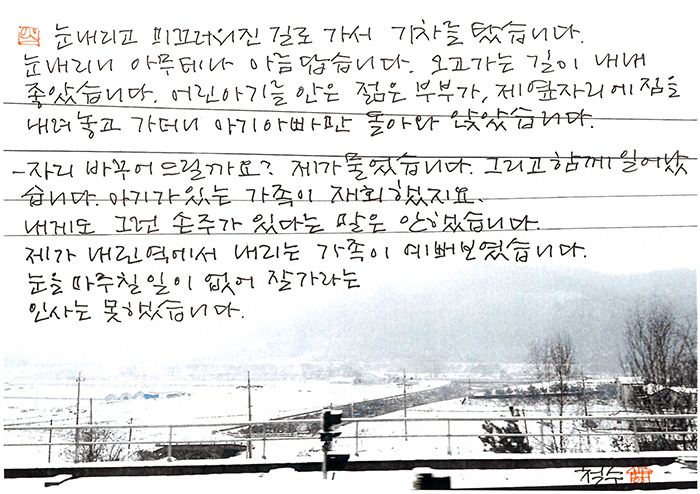 눈내리고 미끄러워진 길로 가서 기차를 탔습니다.
눈내리니 아무데나 아름답습니다. 오고가는 길이 내내
좋았습니다. 어린아기를 안은 젊은 부부가, 제 옆자리에 짐을
내려놓고 가더니 아기아빠만 돌아와 앉았습니다.
-자리 바꾸어 드릴까요? 제가 물었습니다. 그리고 함께 일어났
습니다. 아기가 있는 가족이 재회했지요.
내게도 그런 손주가 있다는 말은 안했습니다.
제가 내린역에서 내리는 가족이 예뻐보였습니다.
눈을 마주칠 일이 없어 잘가라는
인사는 못했습니다.
철수